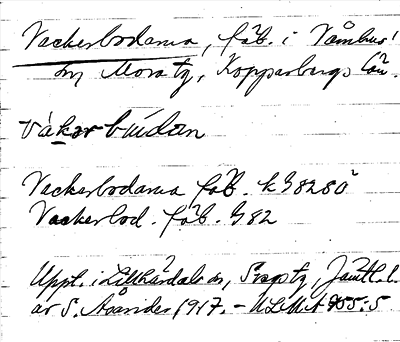 Vackerbodarna, fäb. i Våmhus'
sn Mora tg, Kopparbergs län.
våkarbúdan
Vackerbodarna fäb. k G8280
Vackerbod. fäb. G82
Uppl. i Lillhärdals sn, Svegs tg, Jämtl. l.
av S. 1917. – ULMA : 5